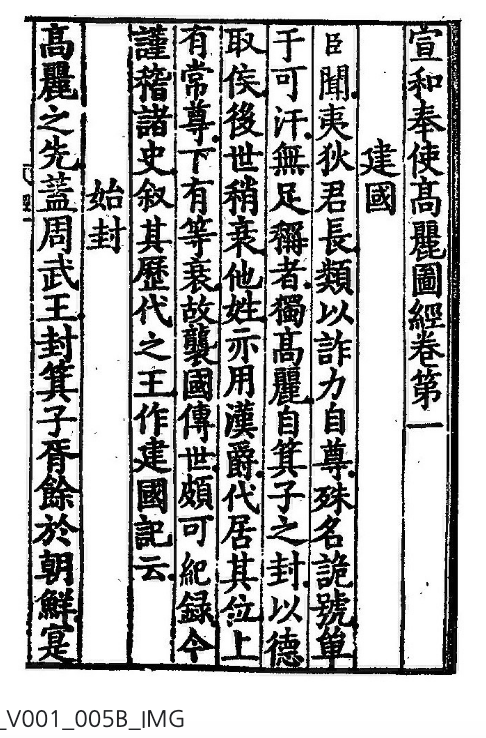 宣和奉使高麗圖經卷第一
建國
臣聞夷狄君長類以詐力自尊殊名詭號單
于可汗無足稱者獨高麗自箕子之封以德
取侯後世稍衰他姓亦用漢爵代居其位上
有常尊下有等衰故襲國傳世頗可紀録今
謹稽諸史叙其歷代之王作建國記云
始封
高麗之先蓋周武王封箕子胥餘於朝鮮寔
_V001_005B_IMG